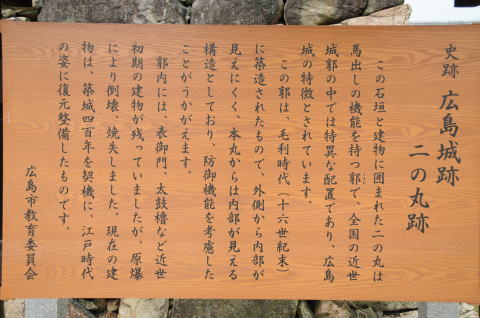 史跡 広島城跡
二の丸跡
この石垣と建物に囲まれた二の丸は
馬出しの機能を持つ郭で、全国の近世
城郭の中では特異な配置であり、広島
城の特徴とされています。
この郭は、毛利時代（十六世紀末）
に築造されたもので、外側から内部が
見えにくく、本丸からは内部が見える
構造としており、防御機能を考慮した
ことがうかがえます。
郭内には、表御門、太鼓櫓など近世
初期の建物が残っていましたが、原爆
により倒壊、焼失しました。現在の建
物は、築城四百年を契機に、江戸時代
の姿に復元整備したものです。
広島市教育委員会